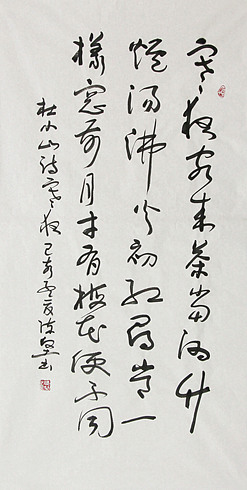 寒夜客来茶当酒竹
炉汤沸火初红寻常一
樣窓前月才有梅花便不同
杜小山诗寒夜己亥孟夏陈书